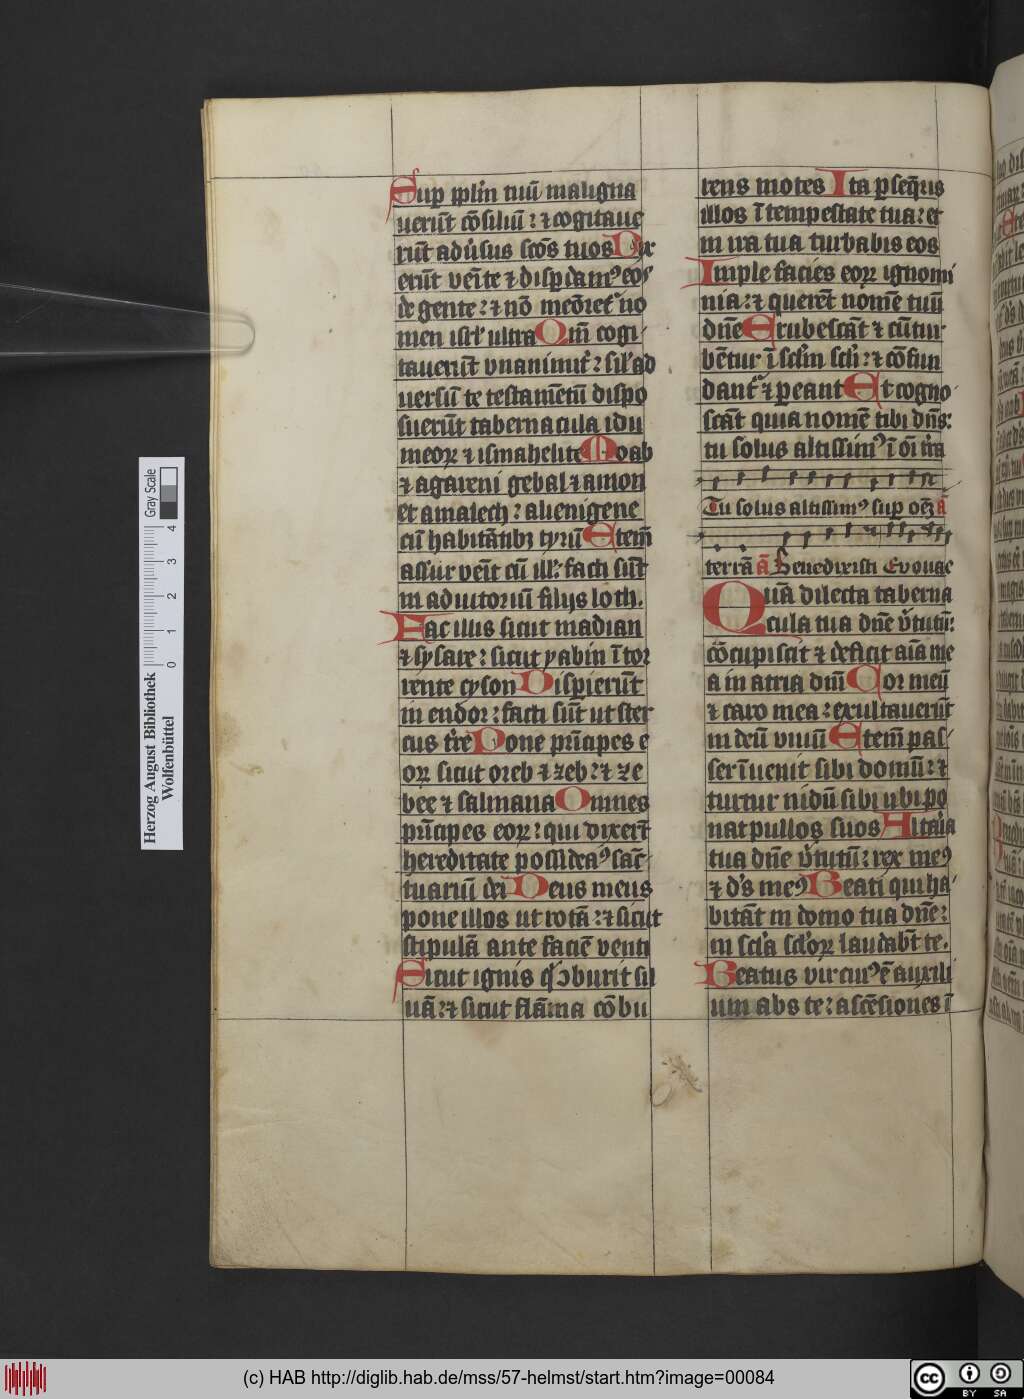 Sup pplm tuū maligna
uerūt cōsiliū: ⁊ cogitaue
rūt adūsus scōs tuos Dix
erūt veīte ⁊ disp̄damꝰ eos
de gente: ⁊ nō meōret᷑ no
men isrl̄ ultra Qm̄ cogi
tauerūt vnanimit᷑: sil̄ ad
uersū te testamētū dispo
suerūt tabernacula idu
meoꝝ ⁊ ismahelite Moab
⁊ agareni gebal ⁊ amon
et amalech: alienigene
cū habitātibꝫ tyrū Etem̄
assur veīt cū ill̄: facti sūt
in adiutoriū filijs loth.
Fac illis sicut madian
⁊ sysare: sicut yabin ī tor
rente cyson Disperierūt
in endor: facti sūt ut ster
cus tr̄re Pone pn̄cipes e
oꝝ sicut oreb ⁊ zeb: ⁊ ze
bee ⁊ salmana Omnes
pn̄cipes eoꝝ: qui dixerūt
hereditate possideaꝰ sāc
tuariū dei Deus meus
pone illos ut rotā: ⁊ sicut
stipulā ante faciē venti
Sicut ignis qͥ ꝯburit sil
uā: ⁊ sicut flāma cōbu
rens mōtes Ita ꝑseq̄ris
illos ī tempestate tua: et
in ira tua turbabis eos
Imple facies eoꝝ ignomi
nia: ⁊ querēt nomē tuū
dn̄e Erubescāt ⁊ cūtur
bētur ī sclm̄ scli̅: ⁊ cōfun
dant᷑ ⁊ ꝑeant Et cogno
scāt quia nomē tibi dn̄s:
tu solus altissimꝰ ī oī tr̄a
Tu solus altissimꝰ sup oēꝫ ā
terrā ā Benedixisti Evouae
Quā dilecta taberna
cula tua dn̄e v̄tutū:
cōcupiscit ⁊ deficit aīa me
a in atria dn̄i Cor meū
⁊ caro mea: exultauerūt
in deū viuū Etem̄ pas
ser īuenit sibi domū: ⁊
turtur nidū sibi ubi po
nat pullos suos Altaīa
tua dn̄e v̄tutū: rex meꝰ
⁊ ds̄ meꝰ Beati qui ha
bitāt in domo tua dn̄e:
in scl̄a scl̄oꝝ laudabūt te.
Beatus vir cuiꝰ ē auxili
um abs te: ascēsiones ī
Herzog August Bibliothek
Wolfenbüttel
0 1 2 3 4
Gray Scale
(c) HAB http://diglib.hab.de/mss/57-helmst/start.htm?image=00084
cc BY SA